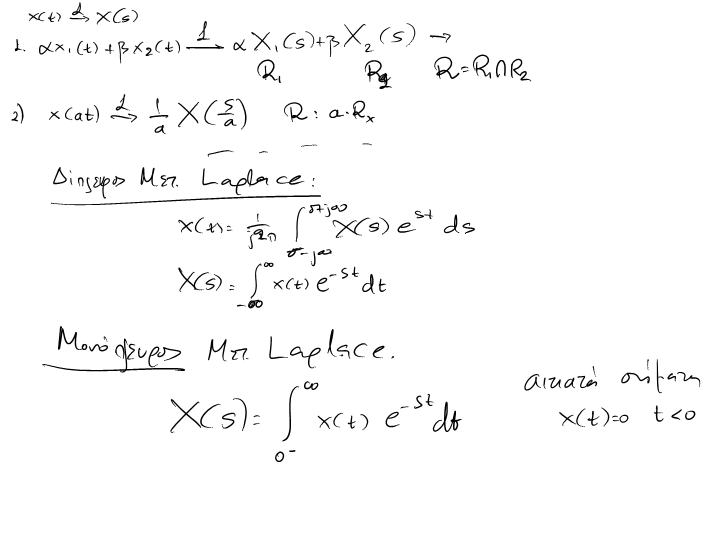 x(t) ℒ→ X(s)
1. αx₁(t) + βx₂(t) ℒ→ αX₁(s) + βX₂(s) →
R₁ R₂ R = R₁∩R₂
2) x(at) ℒ→ 1/a X(s/a) R: a·Rₓ
Δίπλευρος Μετ. Laplace:
x(t) = 1/j2π ∫_{σ-j∞}^{σ+j∞} X(s) e^{st} ds
X(s) = ∫_{-∞}^{∞} x(t) e^{-st} dt
Μονόπλευρος Μετ. Laplace.
αιτιατά σήματα
X(s) = ∫_{0⁻}^{∞} x(t) e^{-st} dt
x(t)=0 t<0